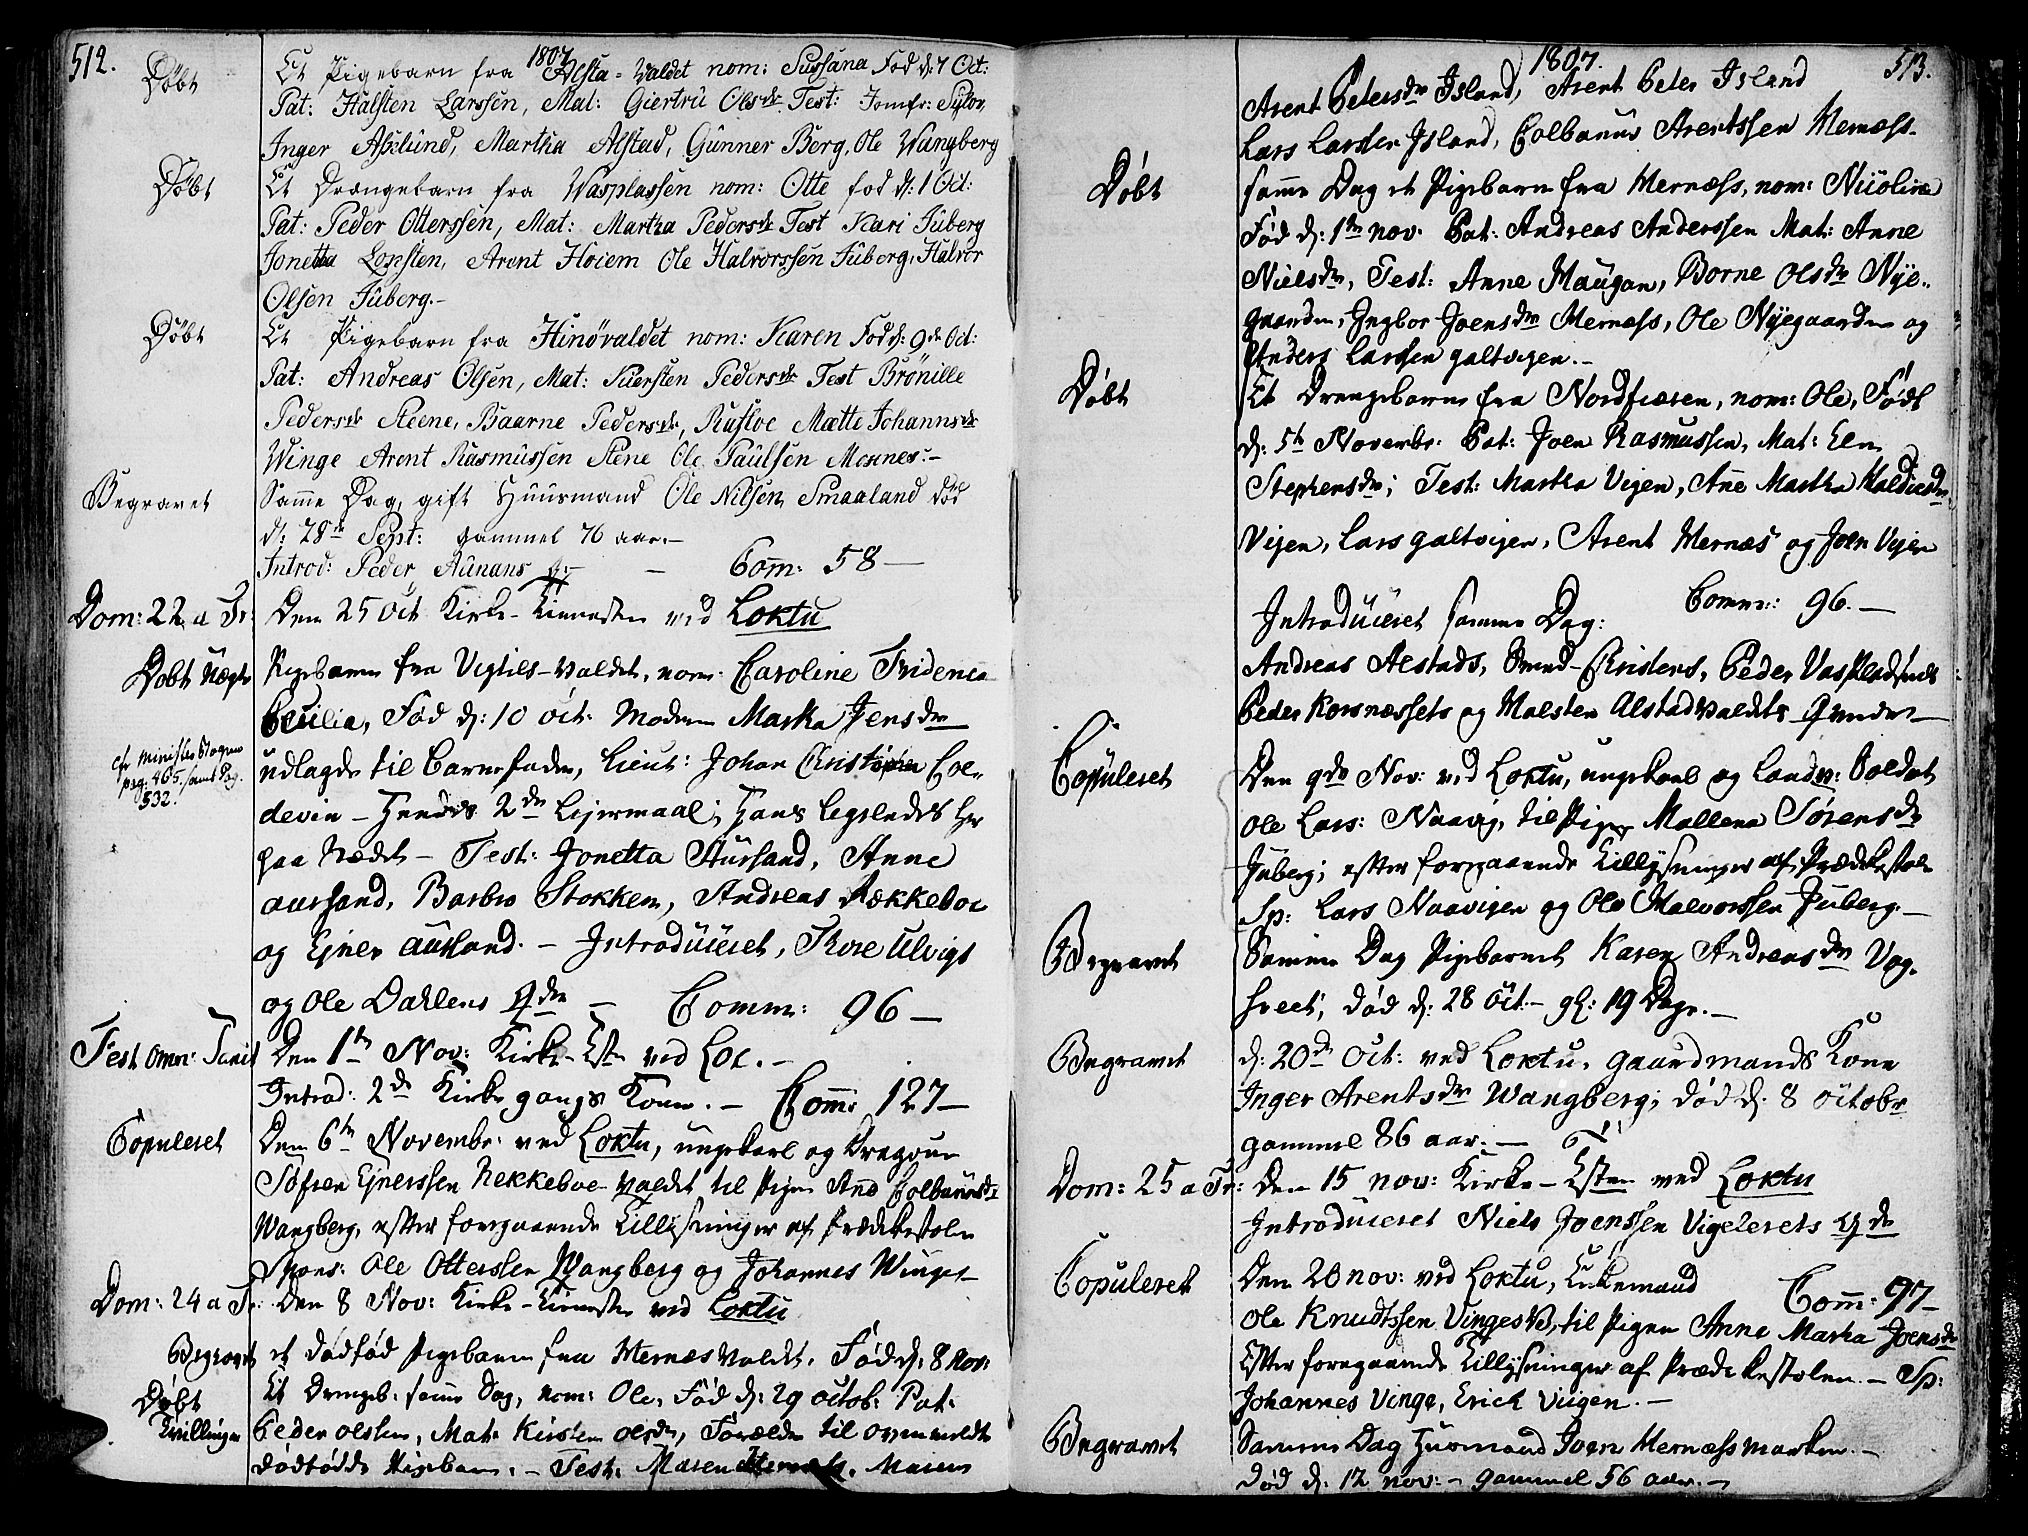 512.
1807
Døbt Et Pigebarn fra Alsta-Valdet nom: Sussana Fød d: 7 Oct:
Pat: Halsten Larssen, Mat: Giertru Olsdr Test: Jomfr: Sylow
Inger Axlund, Martha Alstad, Gunner Berg, Ole Wangberg
Døbt Et Drængebarn fra Wasplassen nom: Otte fød d: 1 Oct:
Pat: Peder Otterssen, Mat: Martha Pedersdr Test Kari Juberg
Jonetta Lonsten, Arent Hoiem Ole Halvorssen Juberg, Halvor
Olsen Juberg.-
Døbt Et Pigebarn fra Hinøvaldet nom: Karen Fød d: 9de Oct:
Pat: Andreas Olsen, Mat: Kiersten Pedersdr Test Brønille
Pedersdr Steene, Baarne Pedersdr, Rusloe Mætte Johannsdr
Winge Arent Rasmussen Stene Ole Paulsen Mernes:-
Begravet Samme Dag, gift Huusmand Ole Nilsen Smaaland død
d: 28de Sept: gammel 76 aar.-
Introd: Peder Aunans q: - Com: 58 -
Dom: 22 a Tr: Den 25 Oct Kirke-Tienesten ved Loktu
Døbt Uægte Pigebarn fra Vigtils-valdet, nom: Caroline Fridenca
Cecilia, Fød d: 10 Oct: Moderen Marta Jensdr
cfr Ministerbogens
pag: 465. samt Pag.
532.
udlagde til Barnefader, Lieut: Johan Christopher Col-
devin - Hendes 2den Lejermaal; Hans Legsledes her
paa Stædet - Test: Jonetta Aursand, Anne
aursand, Barbro Stokken, Andreas Rækkeboe
og Ejner aursand. - Introduceret, Thore Ulvigs
og Ole Dahlens Qder - Comm: 96 -
Fest Omn: Sanct Den 1te Nov: Kirke-Tien ved Loc. -
Introd: 2de Kirkegangs Koner. - Comm: 127 -
Copuleret Den 6te Novembr: ved Loktu, ungekarl og Dragoun
Søfren Ejnerssen Rekkeboe-valdet til Pigen Ane Colbanusdr
Wangberg, efter foregaaende Tillysninger af Prædikestolen
Spons: Ole Otterssen Wangberg og Johannes Winge -
Dom: 24 a Tr: Den 8 Nov: Kirke-Tienesten ved Loktu
Begravet et dødfød Pigebarn fra Mernæsvaldet. Fød d: 8 Nov:
Døbt Et Drengeb: samme Dag, nom: Ole, Fød d: 29 Octob: Pat:
Tvillinger Peder Olssen, Mat: Kirsten Olsdr, Forældre til ovenmeldte
dødfødde Pigebarn. - Test: Maren Mernæs, Maren
1807.
513.
Arent Petersdr Island, Arent Peter Island
Lars Larssen Island, Colbanus Arentssen Mernæss-
Døbt samme Dag et Pigebarn fra Mernæss, nom: Nicoline
Fød d: 1te nov. Pat: Andreas Anderssen Mat: Anne
Nielsdr, Test: Anne Maugan, Borne Olsdr Nye-
gaarden, Ingbor Joensdr Mernæss, Ole Nyegaarden og
Anders Larssen galtvigen.-
Døbt Et Drengebarn fra Nordfieren, nom: Ole, Født
d: 5te Novembr. Pat: Joen Rasmussen, Mat: Elen
Stephensdr; Test: Martha Vigen, Ane Martha
Vigen, Lars galtvigen, Arent Mernæs og Joen Vigen
Comm: 96. -
Introduceret samme Dag:
Andreas Alstads, Smed-Christens, Peder Vasplassends
Peder Korsnæssets og Halsten Alstadvaldets Qvinder -
Copuleret Den 9de Nov: ved Loktu, ungekarl og Landv: Soldat
Ole Lars: Naavig, til Pigen Mallena Sørensdr
Juberg; efter foregaaende Tillysninger af Prædikestolen
Sp: Lars Naavigen og Ole Halvorssen Juberg. -
Begravet Samme Dag Pigebarnet Karen Andreasdr Vog-
sveet; død d: 28 Oct:- gl: 19 Dage. -
Begravet d: 20de Oct: ved Loktu. gaardmands Kone
Inger Arentsdr Wangberg; død d: 8 Octobr
gammel 86 aar. -
Dom: 25 a Tr: Den 15 nov: Kirke-Tiensten ved Loktu
Introduceret Niels Joenssen Vigelerets Qde
Comm: 97 -
Copuleret Den 20 nov: ved Loktu, Enkemand
Ole Knudtssen Vinges Vd, til Pigen Anne Marta Joensdr
Efter foregaaende Tillysninger af Prædikestolen. - Sp:
Johannes Vinge, Erich Viigen. -
Begravet Samme Dag Husmand Joen Mernæssmarken. -
død d: 12 nov: - gammel 56 aar. -